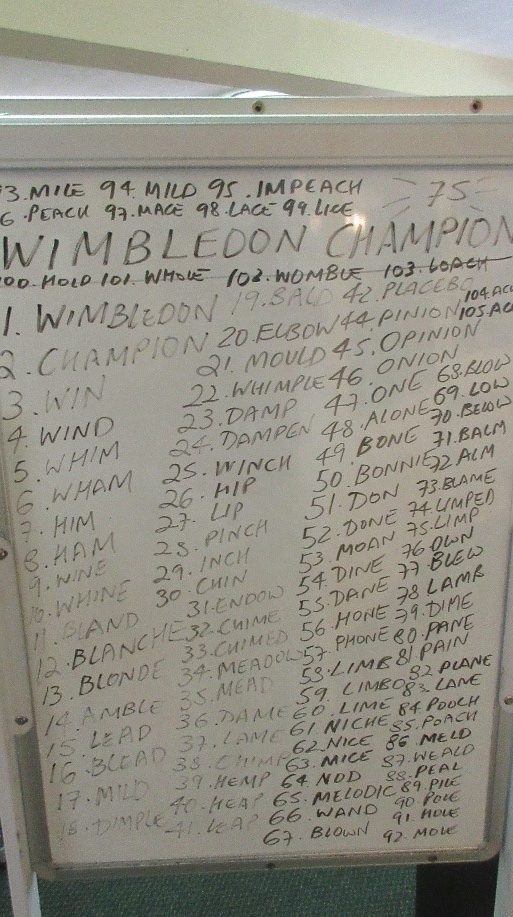 3. MILE 94. MILD 95. IMPEACH
6. PEACH 97. MACE 98. LACE 99. LICE
75
WIMBLEDON CHAMPION
00. HOLD 101. WHOLE 102. WOMBLE 103. LOACH
1. WIMBLEDON
2. CHAMPION
3. WIN
4. WIND
5. WHIM
6. WHAM
7. HIM
8. HAM
9. WINE
10. WHINE
11. BLAND
12. BLANCHE
13. BLONDE
14. AMBLE
15. LEAD
16. BLEAD
17. MILD
18. DIMPLE
19. BALD
20. ELBOW
21. MOULD
22. WHIMPLE
23. DAMP
24. DAMPEN
25. WINCH
26. HIP
27. LIP
28. PINCH
29. INCH
30. CHIN
31. ENDOW
32. CHIME
33. CHIMED
34. MEADOW
35. MEAD
36. DAME
37. LAME
38. CHIMP
39. HEMP
40. HEAP
41. LEAP
42. PLACEBO
44. PINION
45. OPINION
46. ONION
47. ONE
48. ALONE
49 BONE
50. BONNIE
51. DON
52. DONE
53. MOAN
54. DINE
55. DANE
56. HONE
57. PHONE
58. LIMB
59. LIMBO
60. LIME
61 NICHE
62. NICE
63. MICE
64 NOD
65. MELODIC
66. WAND
67. BLOWN
68. BLOW
69. LOW
70. BELOW
71. BALM
72 ALM
73. BLAME
74. UMPED
75. LIMP
76 OWN
77 BLEW
78 LAMB
79. DIME
80. PANE
81. PAIN
82 PLANE
83. LANE
84 POOCH
85. POACH
86 MELD
87. WEALD
88. PEAL
89. PILE
90. POLE
91 HOLE
92. MOLE
104.
105.